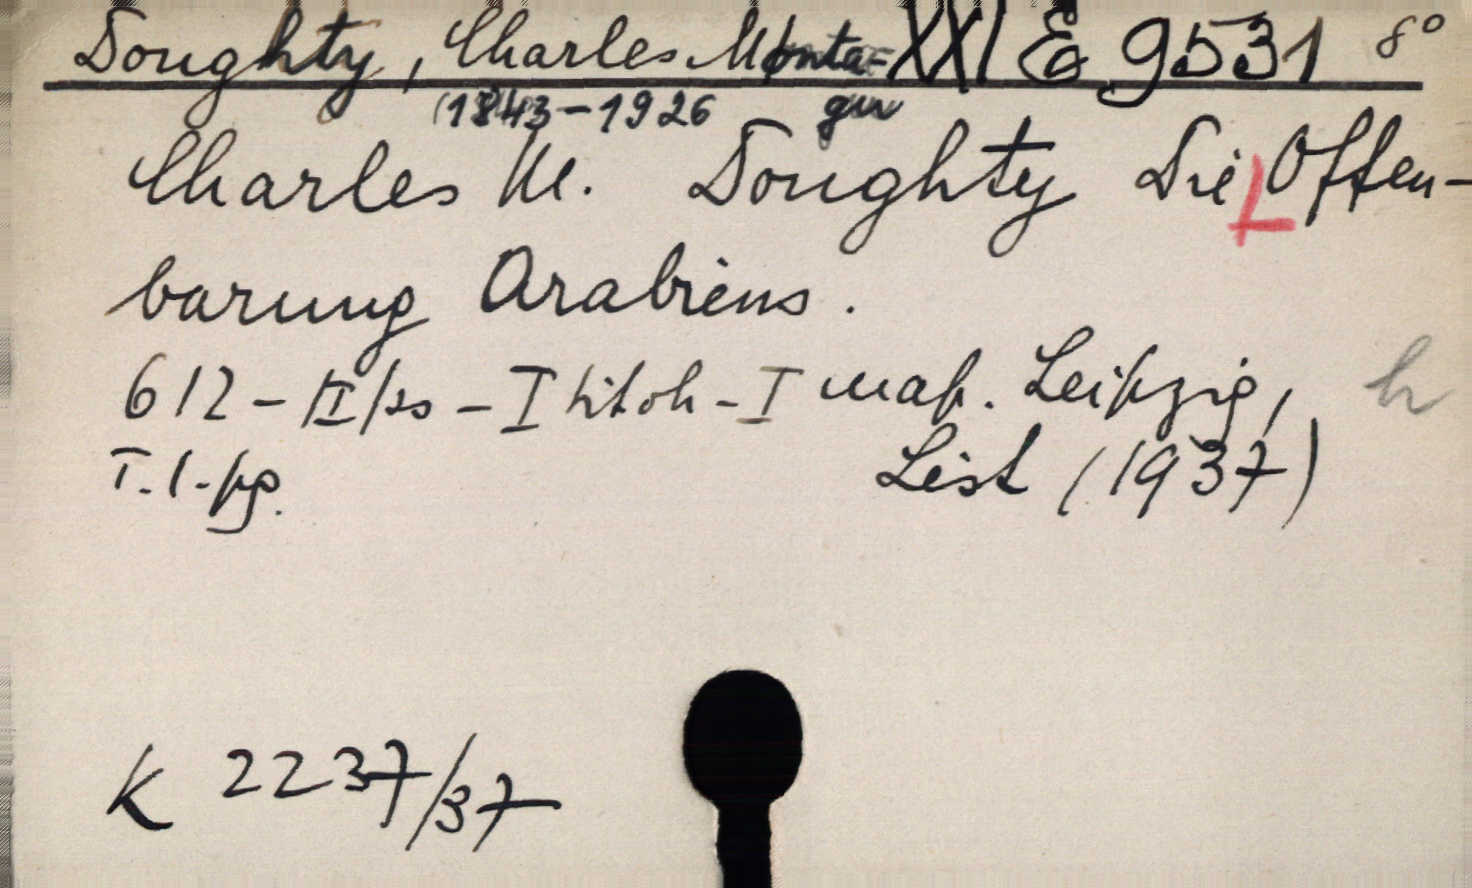 Doughty, Charles Monta= XXI E 9531 8°
(1843-1926 gu
Charles M. Doughty Die Offen-
barung Arabiens.
612 - II - I titoh - I map. Leipzig, h
T. l. pg. List (1937)
K 2237/37